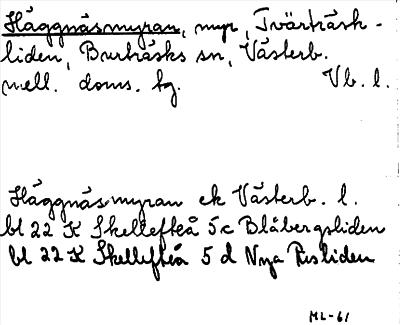 Häggnäsmyran, myr, Tvärträsk-
liden, Burträsks sn, Västerb.
mell. doms. tg. Vb. l.
Häggnäsmyran ek Västerb. l.
bl 22 K Skellefteå 5c Blåbergsliden
bl 22 K Skellefteå 5 d Nya Risliden
ML-61